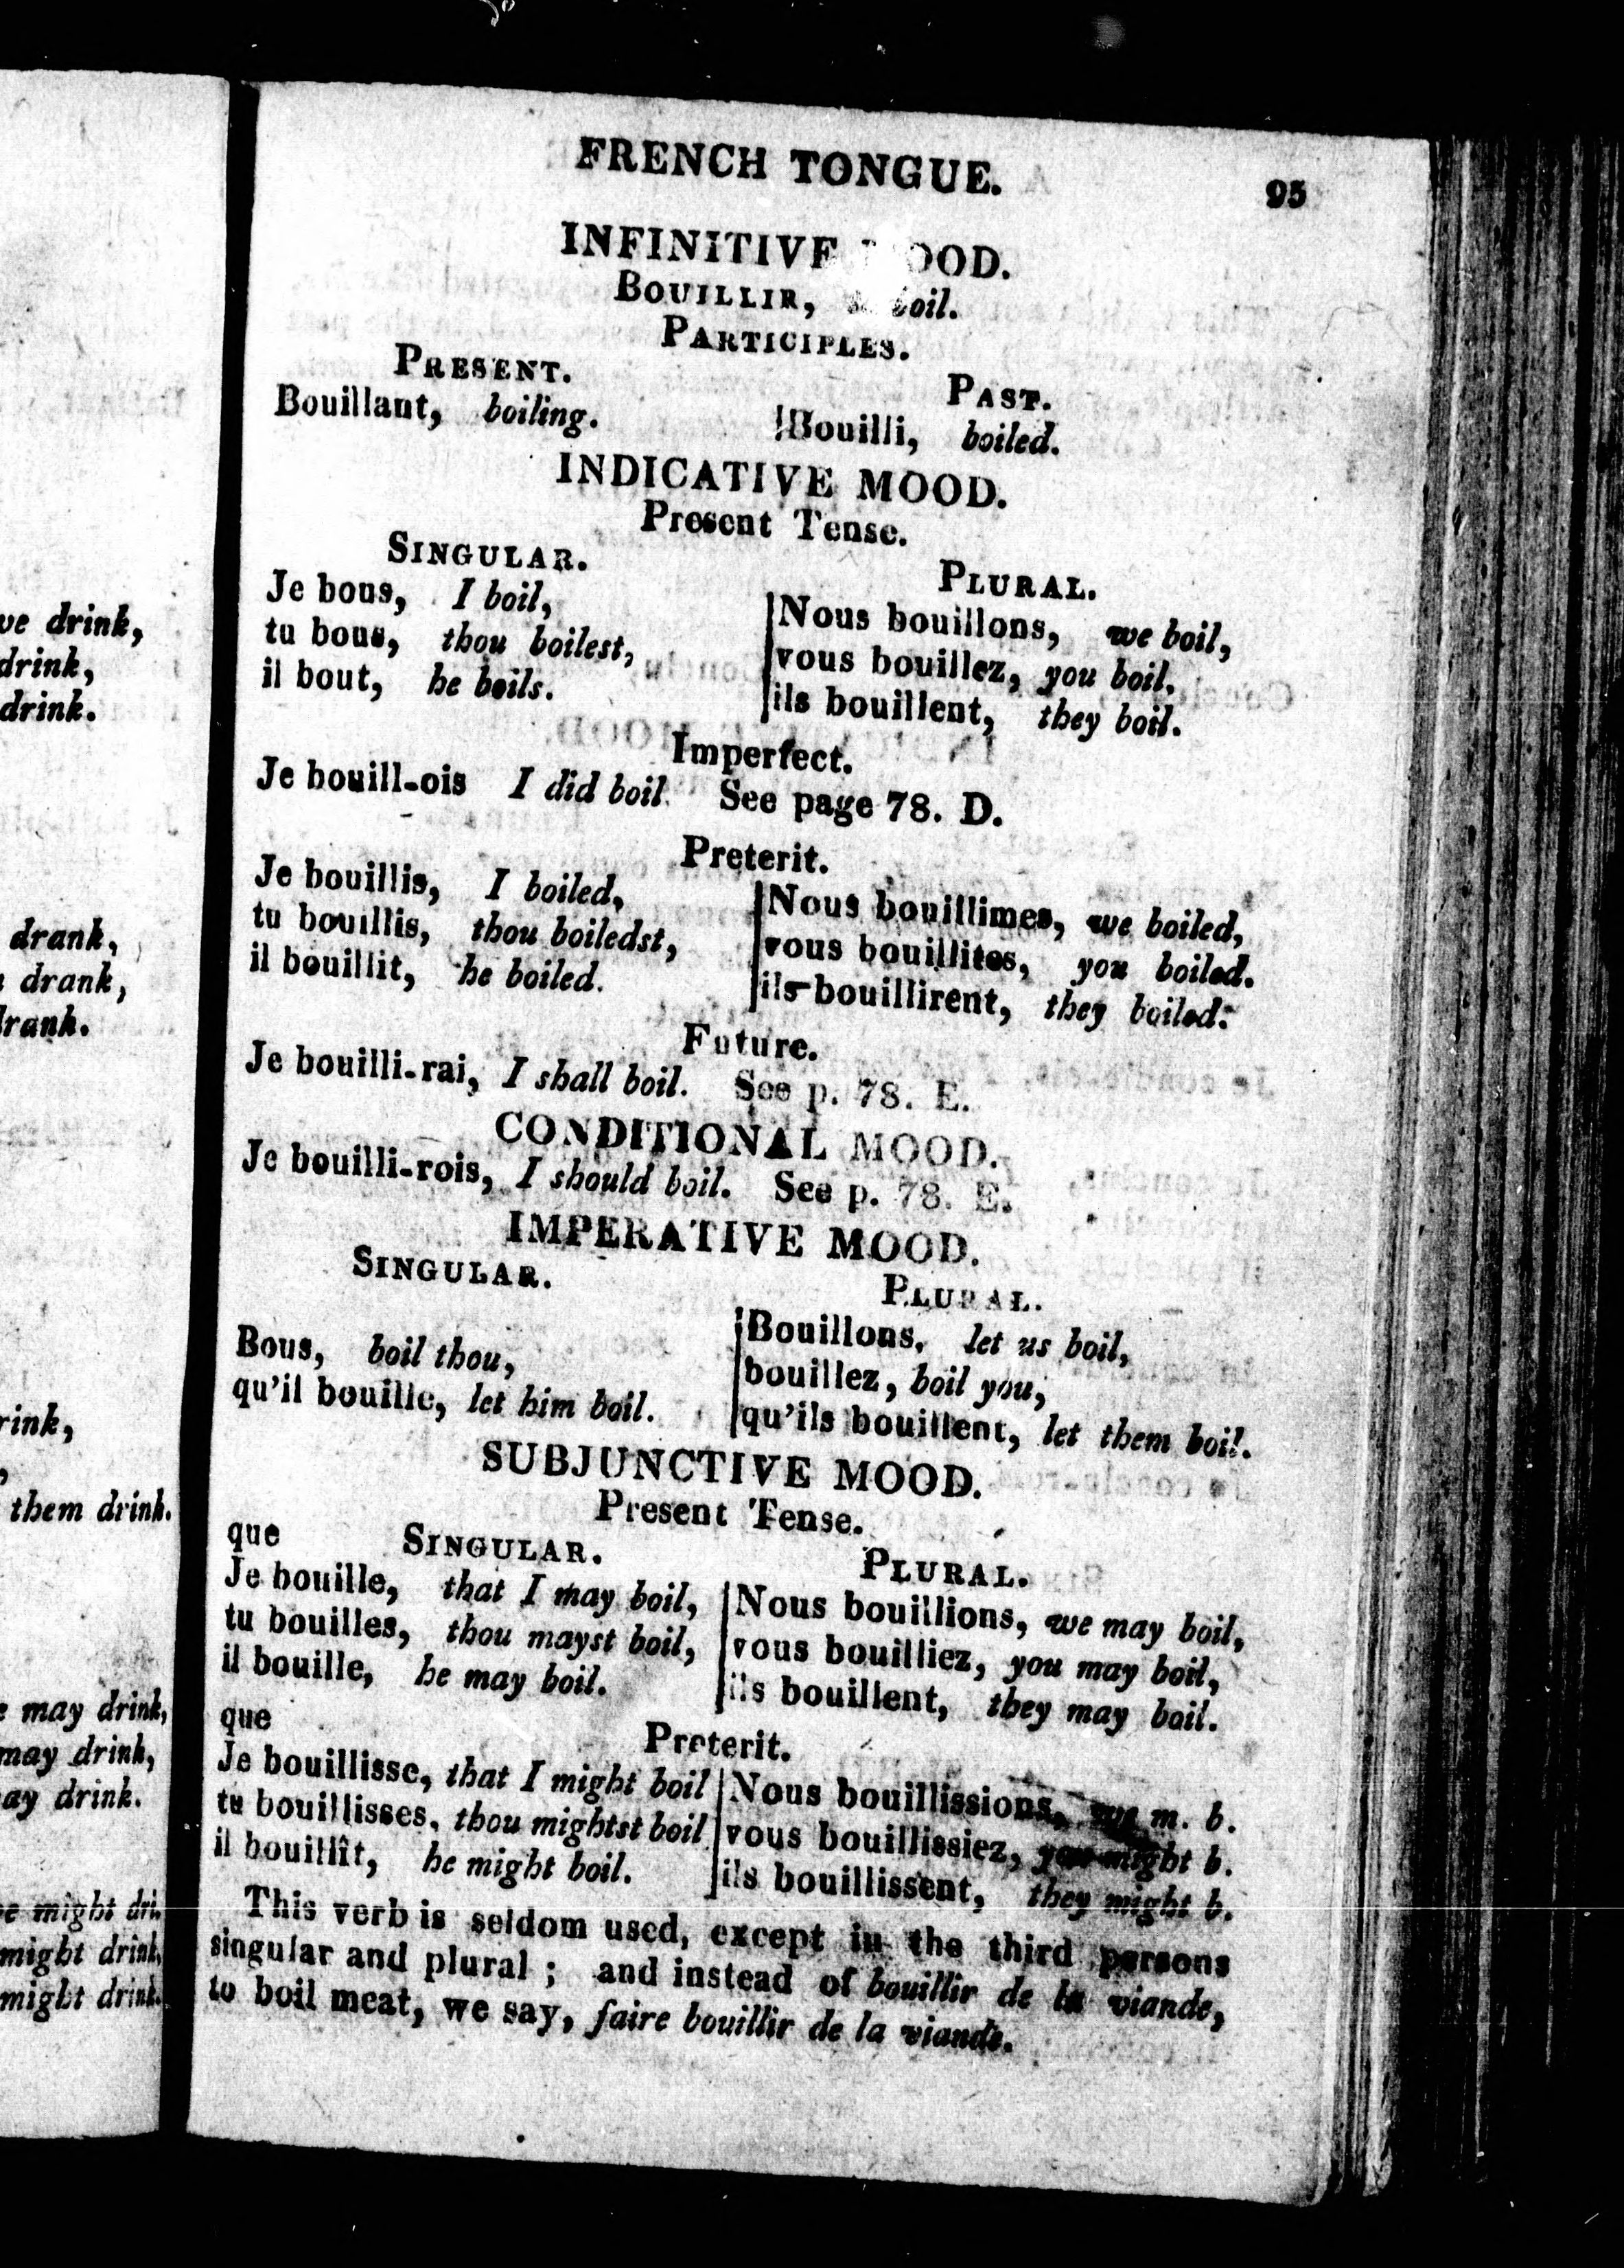 FRENCH TONGUE. 95
INFINITIVE OOD.
BOUILLIR, boil.
PARTICIPLES.
PRESENT. PAST.
Bouillant, boiling. Bouilli, boiled.
INDICATIVE MOOD.
Present Tense.
SINGULAR. PLURAL.
Je bous, I boil, Nous bouillons, we boil,
tu bous, thou boilest, vous bouillez, you boil.
il bout, he boils. ils bouillent, they boil.
Imperfect.
Je bouill-ois I did boil. See page 78. D.
Preterit.
Je bouillis, I boiled, Nous bouillimes, we boiled,
tu bouillis, thou boiledst, vous bouillites, you boiled.
il bouillit, he boiled. ils bouillirent, they boiled.
Future.
Je bouilli-rai, I shall boil. See p. 78. E.
CONDITIONAL MOOD.
Je bouilli-rois, I should boil. See p. 78. E.
IMPERATIVE MOOD.
SINGULAR. PLURAL.
Bouillons, let us boil,
Bous, boil thou, bouillez, boil you,
qu'il bouille, let him boil. qu'ils bouillent, let them boil.
SUBJUNCTIVE MOOD.
Present Tense.
que SINGULAR. PLURAL.
Je bouille, that I may boil, Nous bouillions, we may boil,
tu bouilles, thou mayst boil, vous bouilliez, you may boil,
il bouille, he may boil. ils bouillent, they may boil.
que Preterit.
Je bouillisse, that I might boil Nous bouillissions, we m. b.
tu bouillisses, thou mightst boil vous bouillissiez, you might b.
il bouillît, he might boil. ils bouillissent, they might b.
This verb is seldom used, except in the third persons
singular and plural ; and instead of bouillir de la viande,
to boil meat, we say, faire bouillir de la viande.
ve drink,
drink,
drink.
drank,
drank,
drank.
rink,
them drink.
may drink,
may drink,
ay drink.
e might dri.
might drink,
might drink.